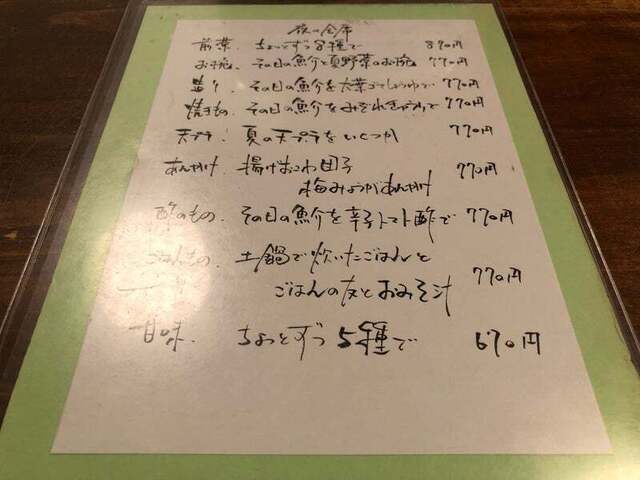 夜の会席
前菜. ちょっとずつ8種で 890円
お椀. その日の魚介と夏野菜のお椀 770円
造り. その日の魚介を大葉ごましょうゆで 770円
焼きもの. その日の魚介をみぞれ 770円
天プラ. 夏の天プラをいくつか 770円
あんかけ. 揚げおこわ団子
梅みょうがあんかけ 770円
酢のもの. その日の魚介を辛子トマト酢で 770円
ごはんもの. 土鍋で炊いたごはんと
ごはんの友とおみそ汁 770円
甘味. ちょっとずつ5種で 670円